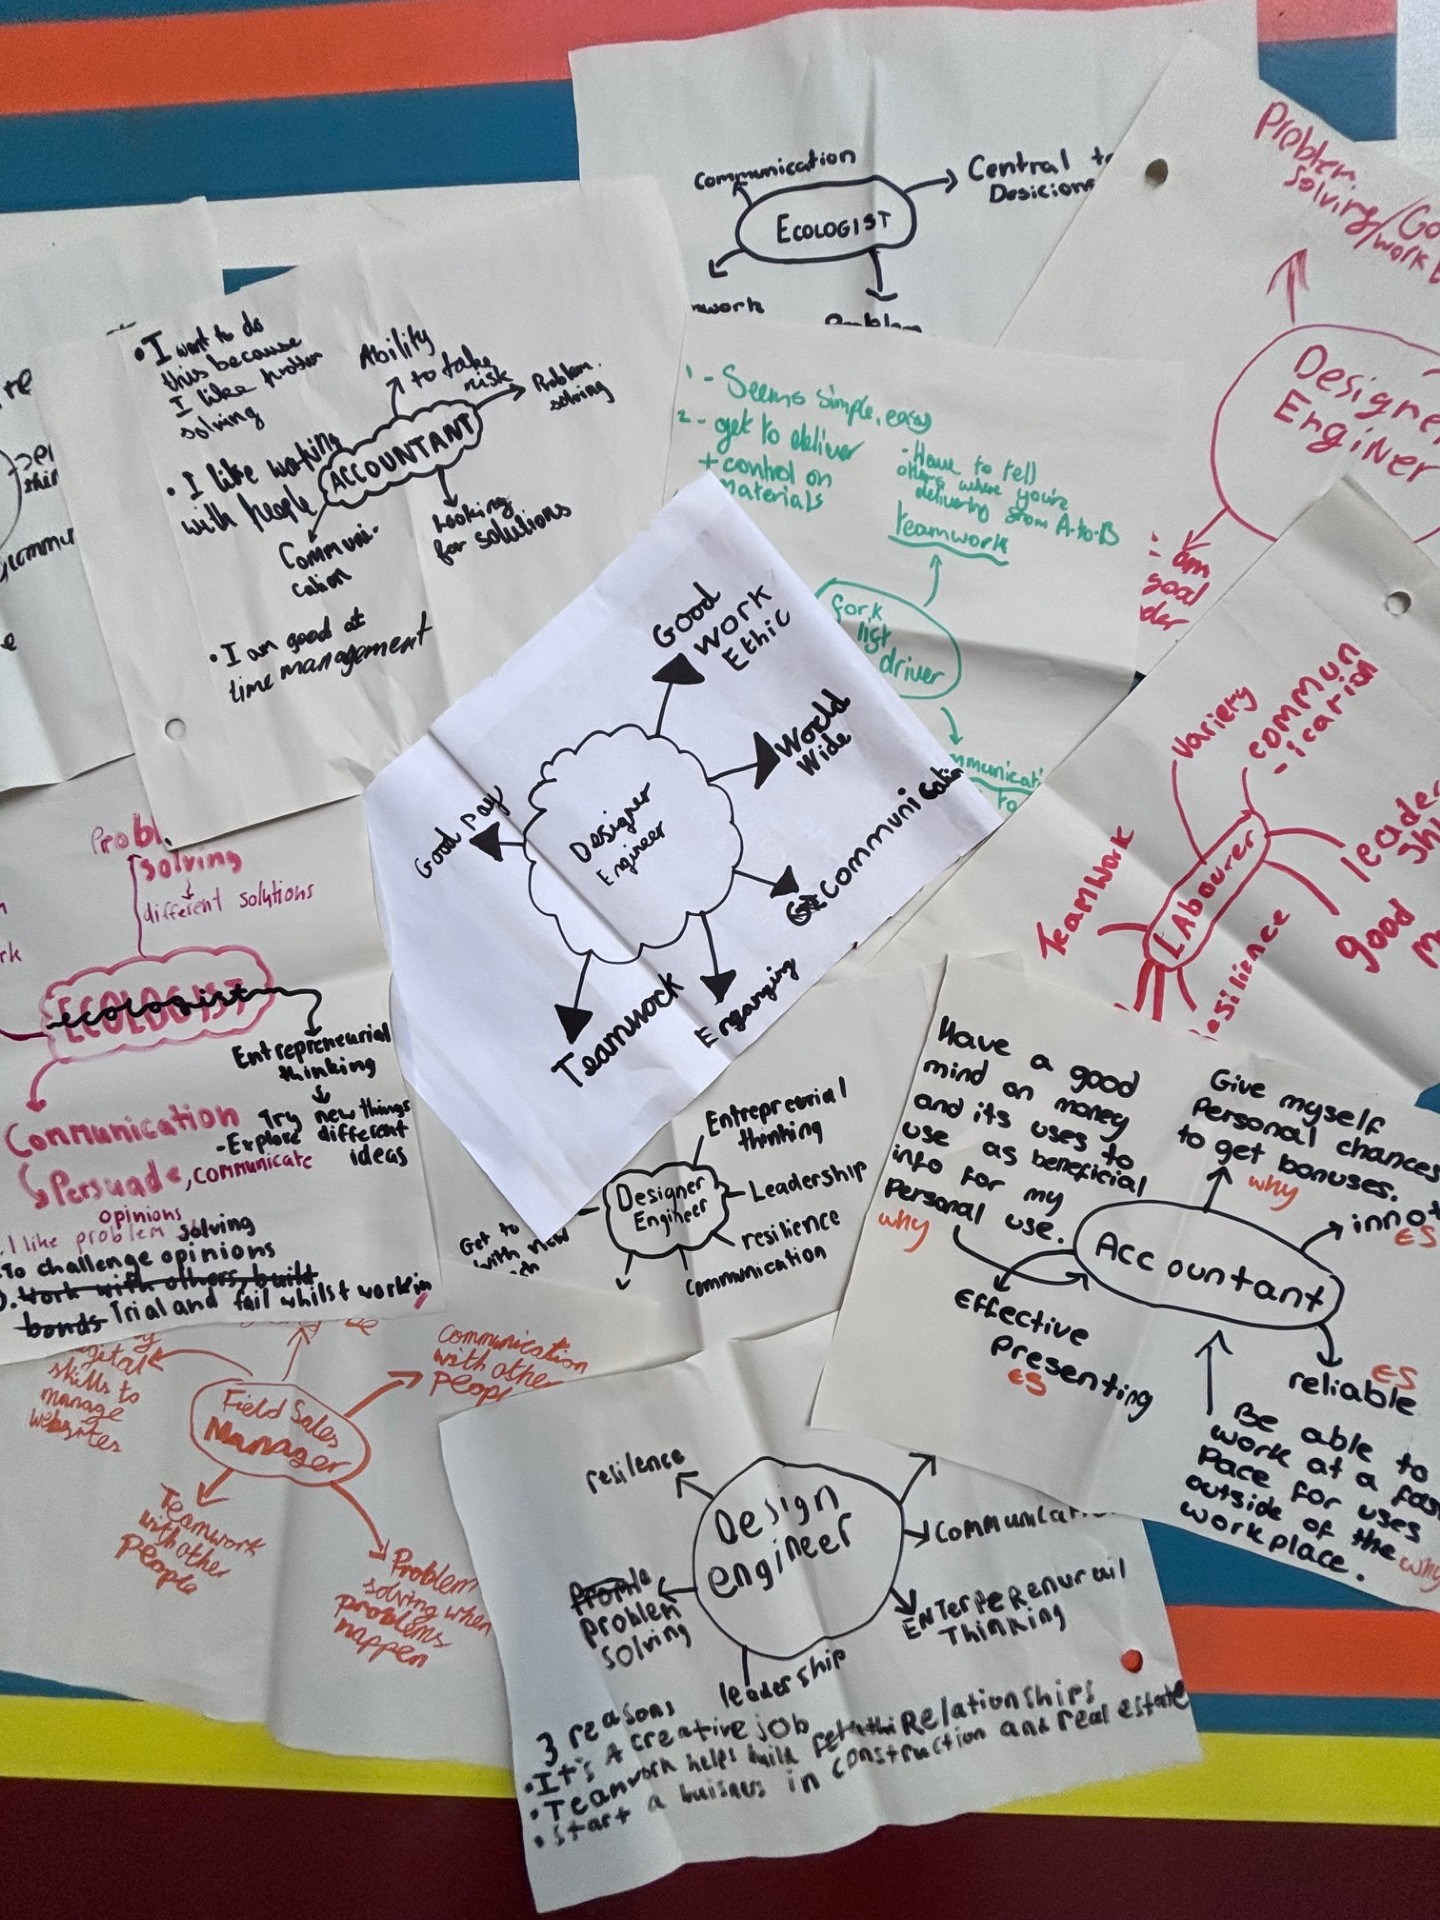 communication
Central to
Desicions
ECOLOGIST
Problem
Solving/
work
Designer
Engineer
• I want to do
this because
I like problem
solving
• I like working
with people
Ability
to take
risk
Problem.
solving
ACCOUNTANT
Communi-
cation
Looking
for solutions
• I am good at
time management
1 - Seems simple, easy
2 - get to deliver
+ control on
materials
- Have to tell
others where you're
delivering from A-to-B
teamwork
fork
list
driver
to
am
good
Good
Work
Ethic
World
Wide
Communication
Engarging
Teamwork
Good pay
Designer
Engineer
Variety
commun
-ication
Teamwork
LAbourer
good
solving
different solutions
ECOLOGIST
ecologist
Entrepreneurial
thinking
Try new things
- Explore different
ideas
Communication
Persuade, communicate
opinions
I like problem solving
To challenge opinions
Work with others, build
bonds Trial and fail whilst workin
Entrepreurial
thinking
Leadership
resilience
communication
Designer
Engineer
Get to
with new
Have a good
mind on money
and its uses to
use as beneficial
info for my
Personal use.
why
Give myself
Personal chances
to get bonuses.
why
ES
Accountant
Effective
Presenting
ES
reliable
ES
Be able to
work at a fast
Pace for uses
outside of the
workplace.
why
skills to
manage
websites
Field Sales
Manager
communication
with other
Teamwork
with other
people
Problem
solving when
problems
happen
resilence
Design
engineer
problem
solving
leadership
Communicati
ENTerPerenurail
Thinking
3 reasons
• It's A creative job
• Teamwork helps build Relationships
• Start a buisnes in construction and real estate